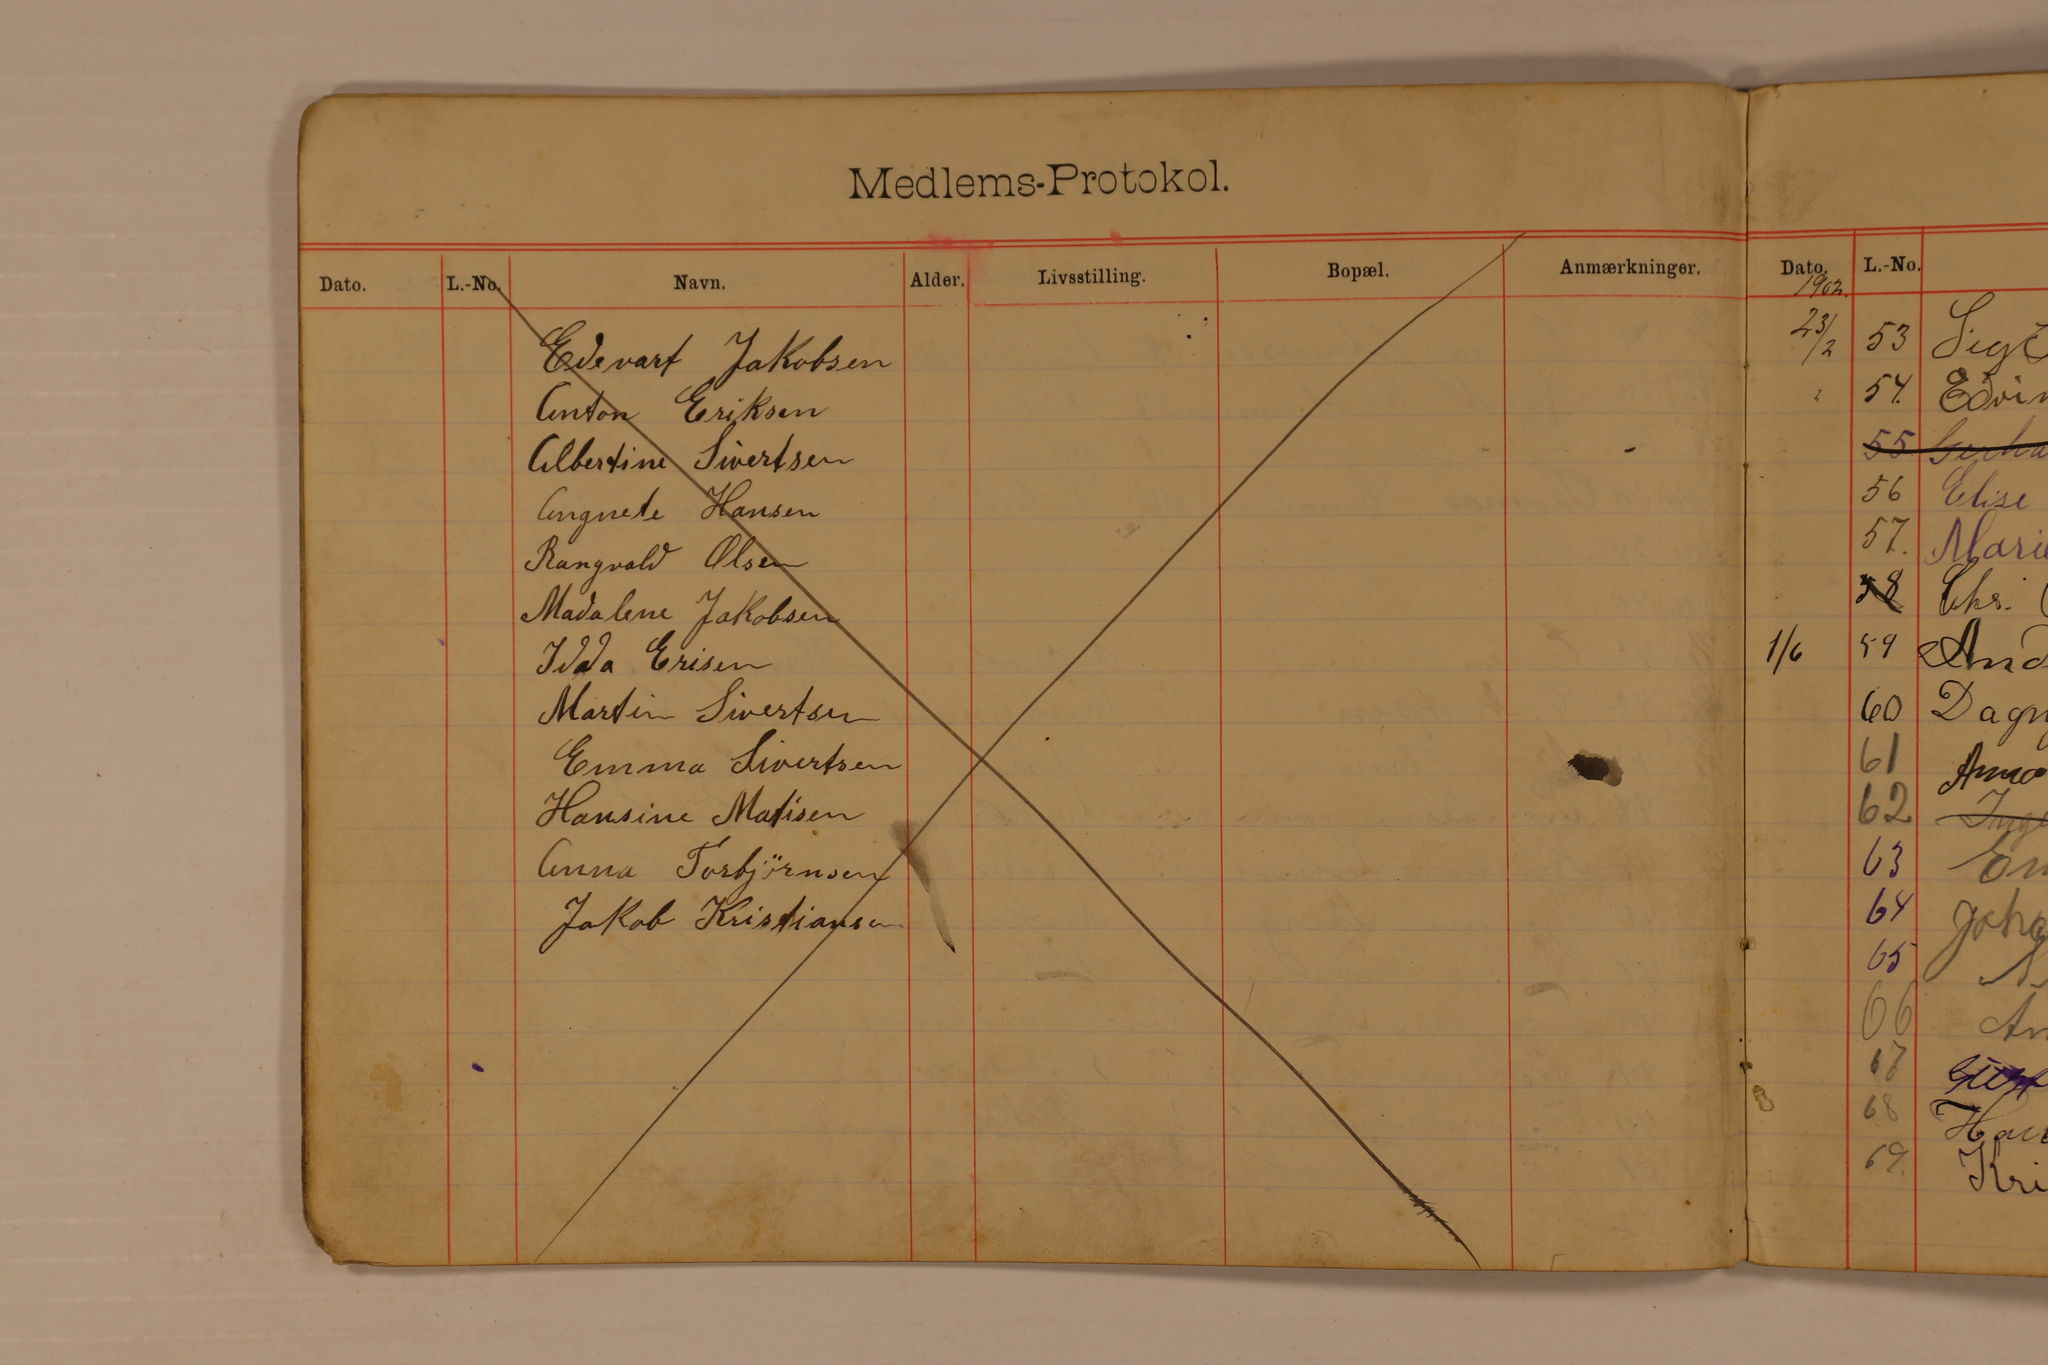 Medlems-Protokol.
Dato. L.-No. Navn. Alder. Livsstilling. Bopæl. Anmærkninger.
Edevart Jakobsen
Anton Eriksen
Albertine Sivertsen
Angnete Hansen
Rangvald Olsen
Madalene Jakobsen
Idda Erisen
Martin Sivertsen
Emma Sivertsen
Hansine Matisen
Anna Torbjörnsen
Jakob Kristiansen
Dato. L.-No.
1902.
23/2 53
54.
55
56 Elise
57.
58 Chr.
1/6 59
60
61
62
63
64
65
66
67
68
69.